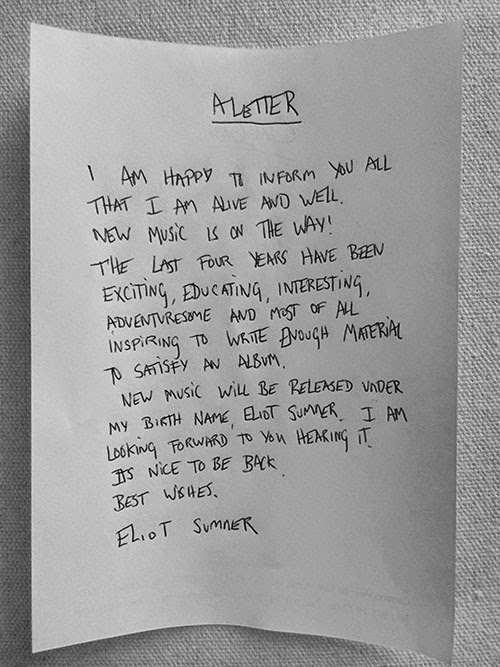 A LETTER
I AM HAPPY TO INFORM YOU ALL
THAT I AM ALIVE AND WELL.
NEW MUSIC IS ON THE WAY!
THE LAST FOUR YEARS HAVE BEEN
EXCITING, EDUCATING, INTERESTING,
ADVENTURESOME AND MOST OF ALL
INSPIRING TO WRITE ENOUGH MATERIAL
TO SATISFY AN ALBUM.
NEW MUSIC WILL BE RELEASED UNDER
MY BIRTH NAME, ELIOT SUMNER. I AM
LOOKING FORWARD TO YOU HEARING IT.
ITS NICE TO BE BACK.
BEST WISHES.
ELIOT SUMNER